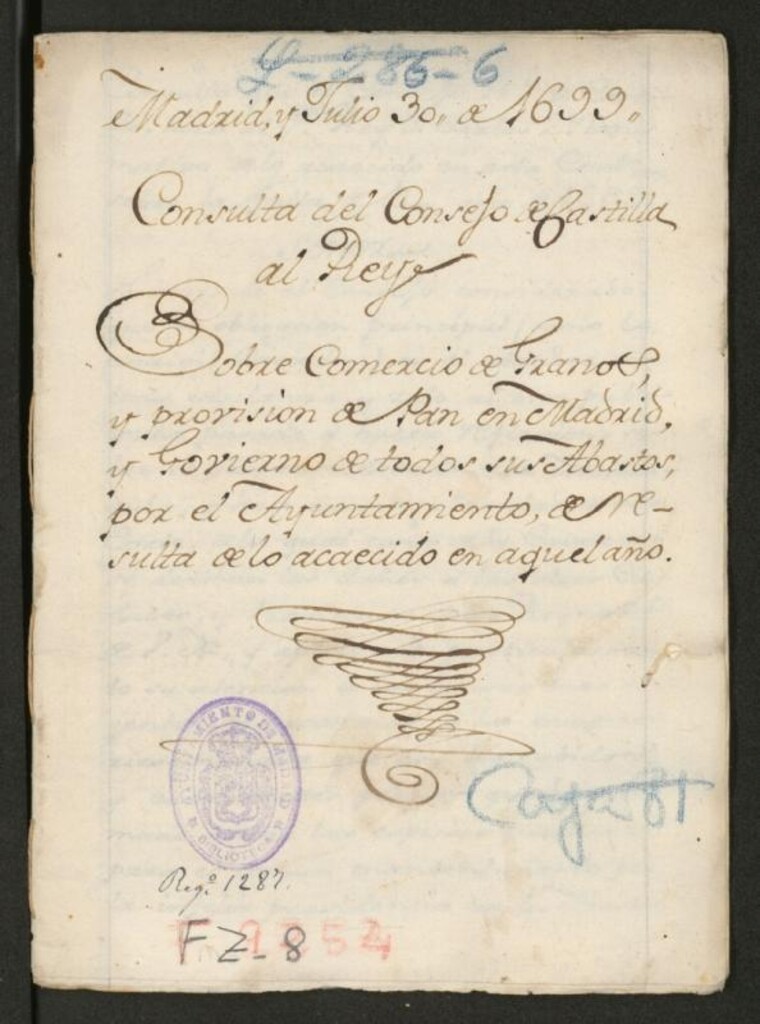 L-286-6
Madrid, y Julio 30,, de 1699,,
Consulta del Consejo de Castilla
al Rey
Sobre Comercio de Granos,
y provision de Pan en Madrid,
y Govierno de todos sus Abastos,
por el Ayuntamiento, de re-
sulta de lo acaecido en aquel año.
AYUNTAMIENTO DE MADRID
BIBLIOTECA
Caja 81
Reg.º 1287.
FZ-8